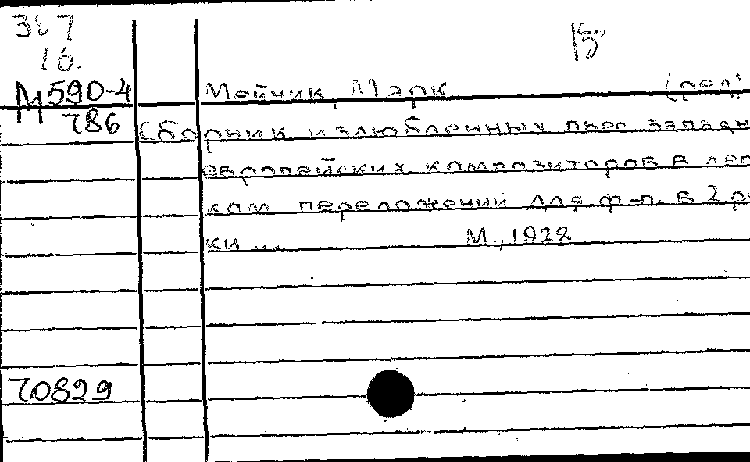 327
16.
15
М590-4
786
Мейчик, Марк (ред)
Сборник излюбленных пьес западн
европейских композиторов в лег
ком переложении для ф-п. в 2 ру
ки ... М., 1928
70829